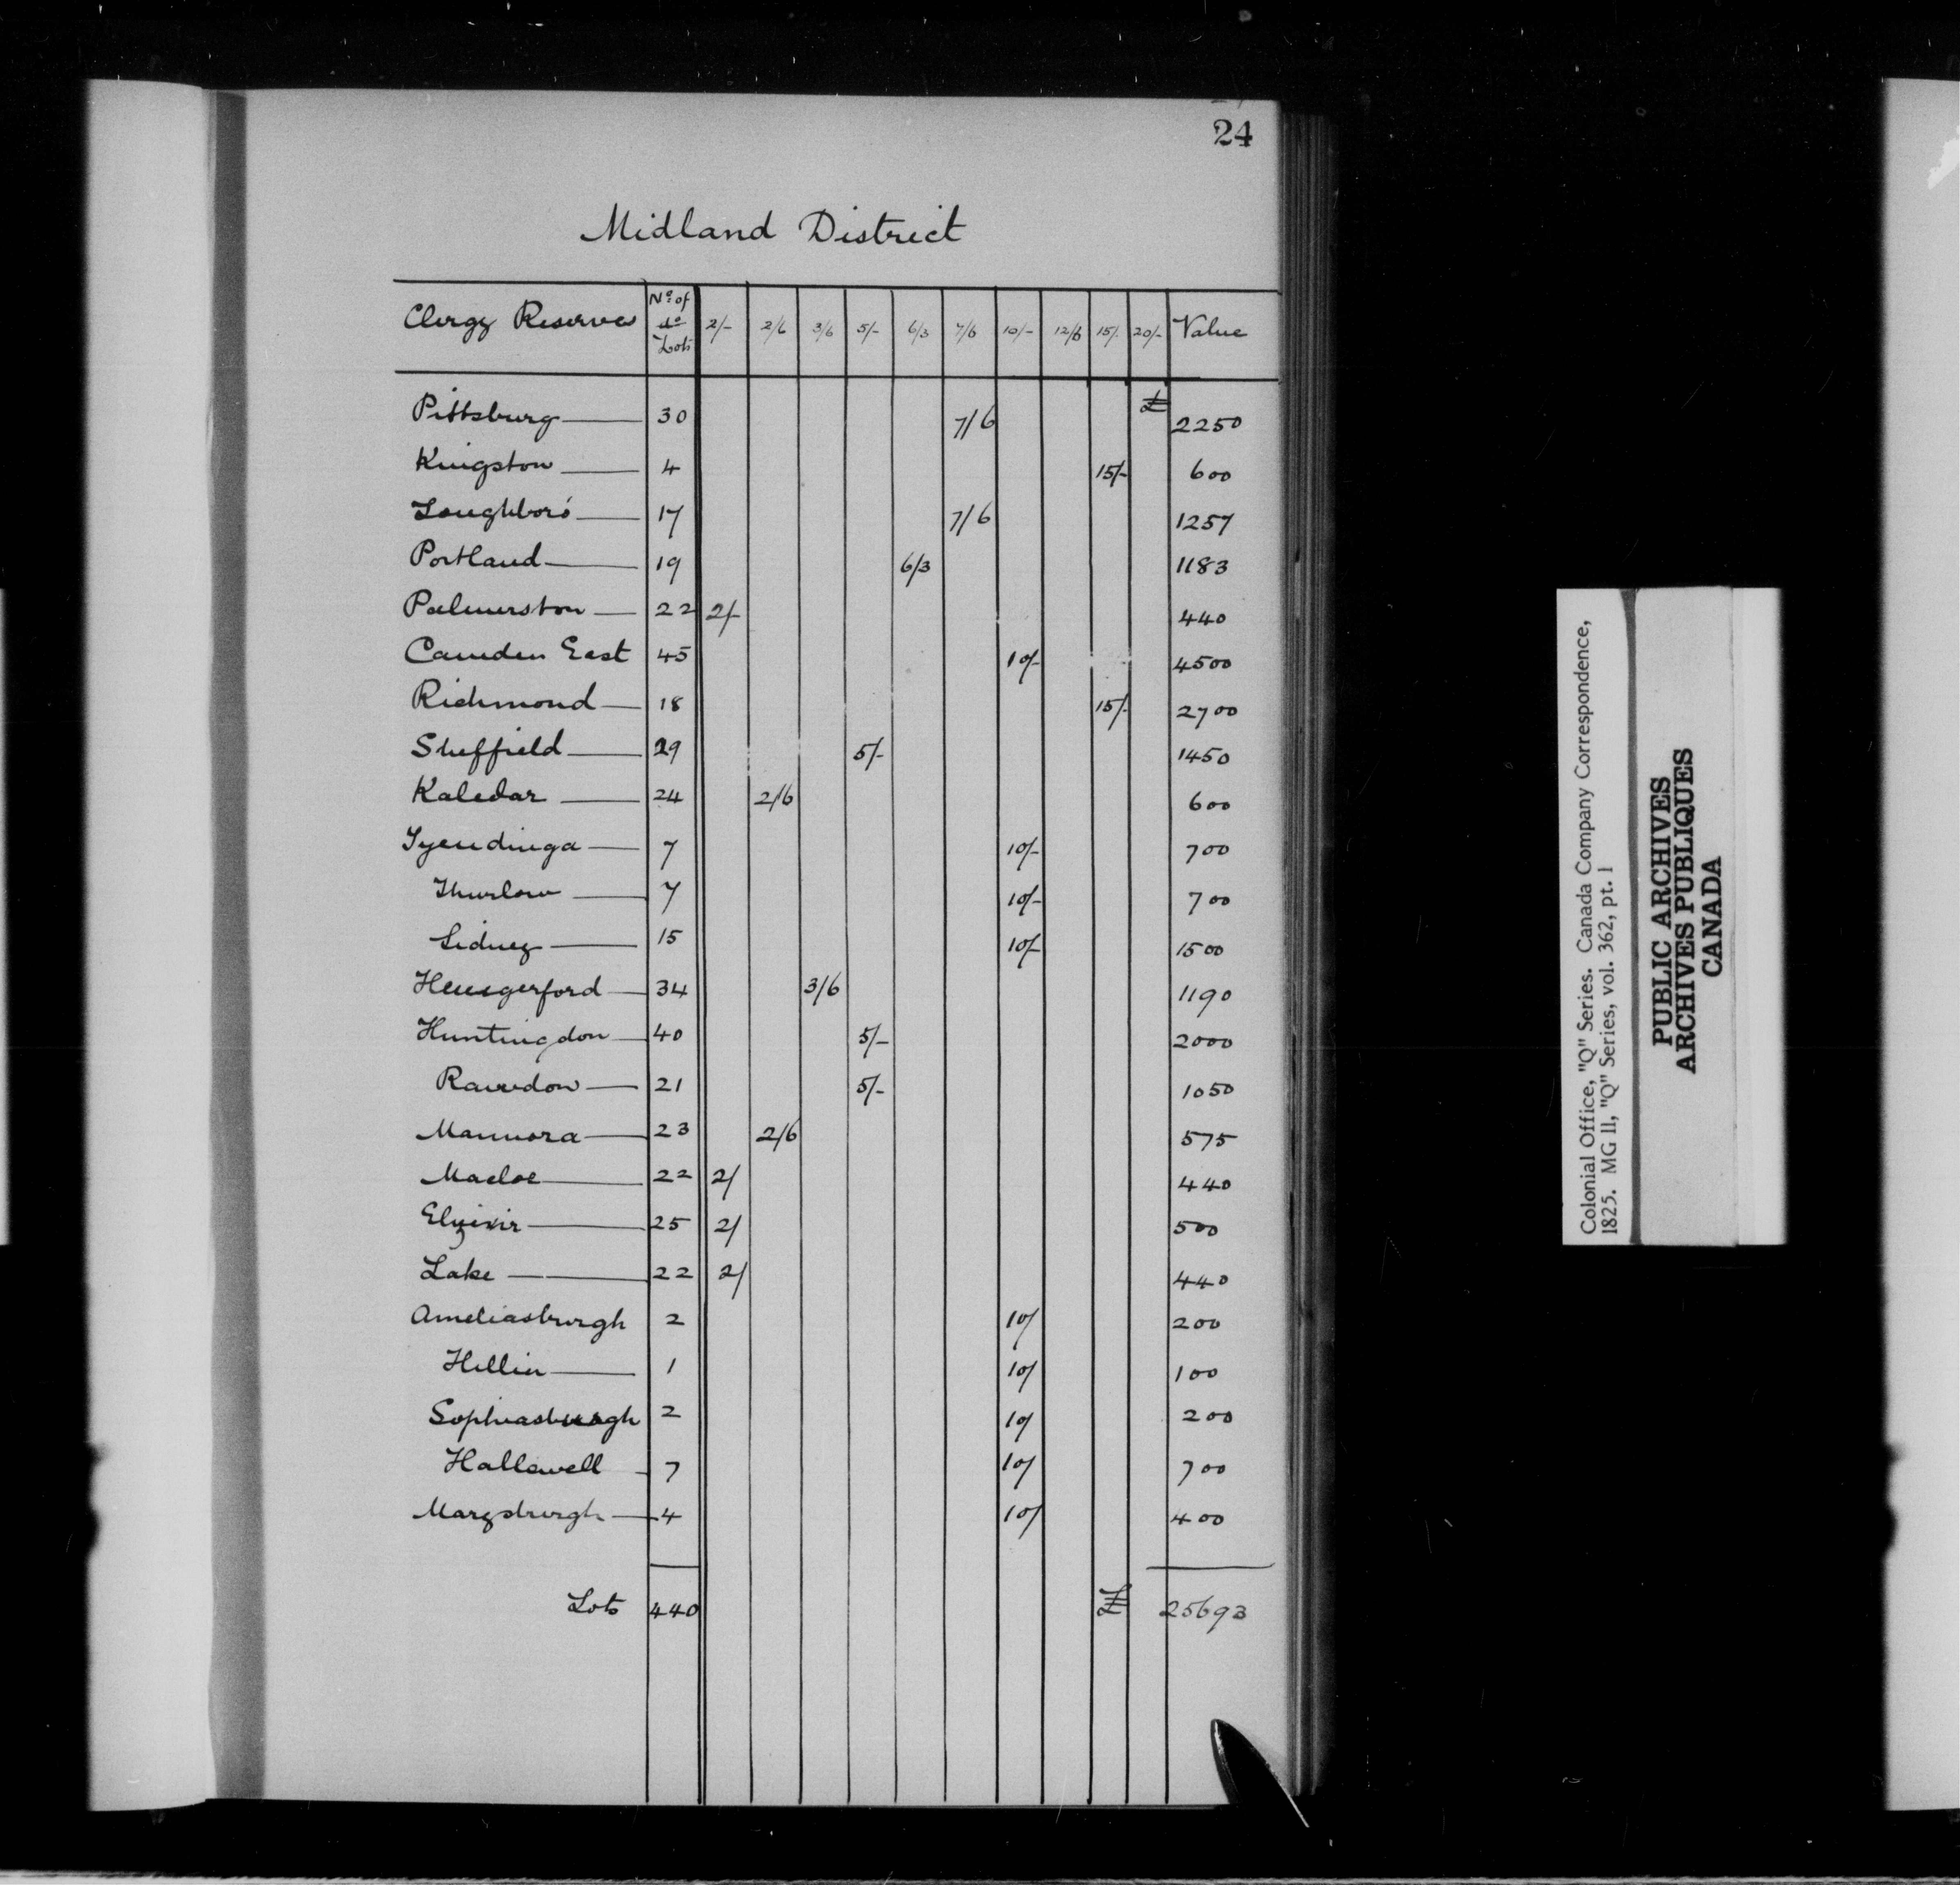 24
Midland District
Clergy Reserves No. of do Lots 2/- 2/6 3/6 5/- 6/3 7/6 10/- 12/6 15/- 20/- Value
Pittsburg 30 7/6 £ 2250
Kingston 4 15/- 600
Loughboro' 17 7/6 1257
Portland 19 6/3 1183
Palmerston 22 2/- 440
Camden East 45 10/- 4500
Richmond 18 15/- 2700
Sheffield 29 5/- 1450
Kaledar 24 2/6 600
Tyendinga 7 10/- 700
Thurlow 7 10/- 700
Sidney 15 10/- 1500
Hungerford 34 3/6 1190
Huntingdon 40 5/- 2000
Rawdon 21 5/- 1050
Marmora 23 2/6 575
Madoc 22 2/ 440
Elzivir 25 2/ 500
Lake 22 2/ 440
Ameliasburgh 2 10/ 200
Hillier 1 10/ 100
Sophiasburgh 2 10/ 200
Hallowell 7 10/ 700
Marysburgh 4 10/ 400
Lots 440 £ 25693
Colonial Office, "Q" Series. Canada Company Correspondence,
1825. MG 11, "Q" Series, vol. 362, pt. 1
PUBLIC ARCHIVES
ARCHIVES PUBLIQUES
CANADA